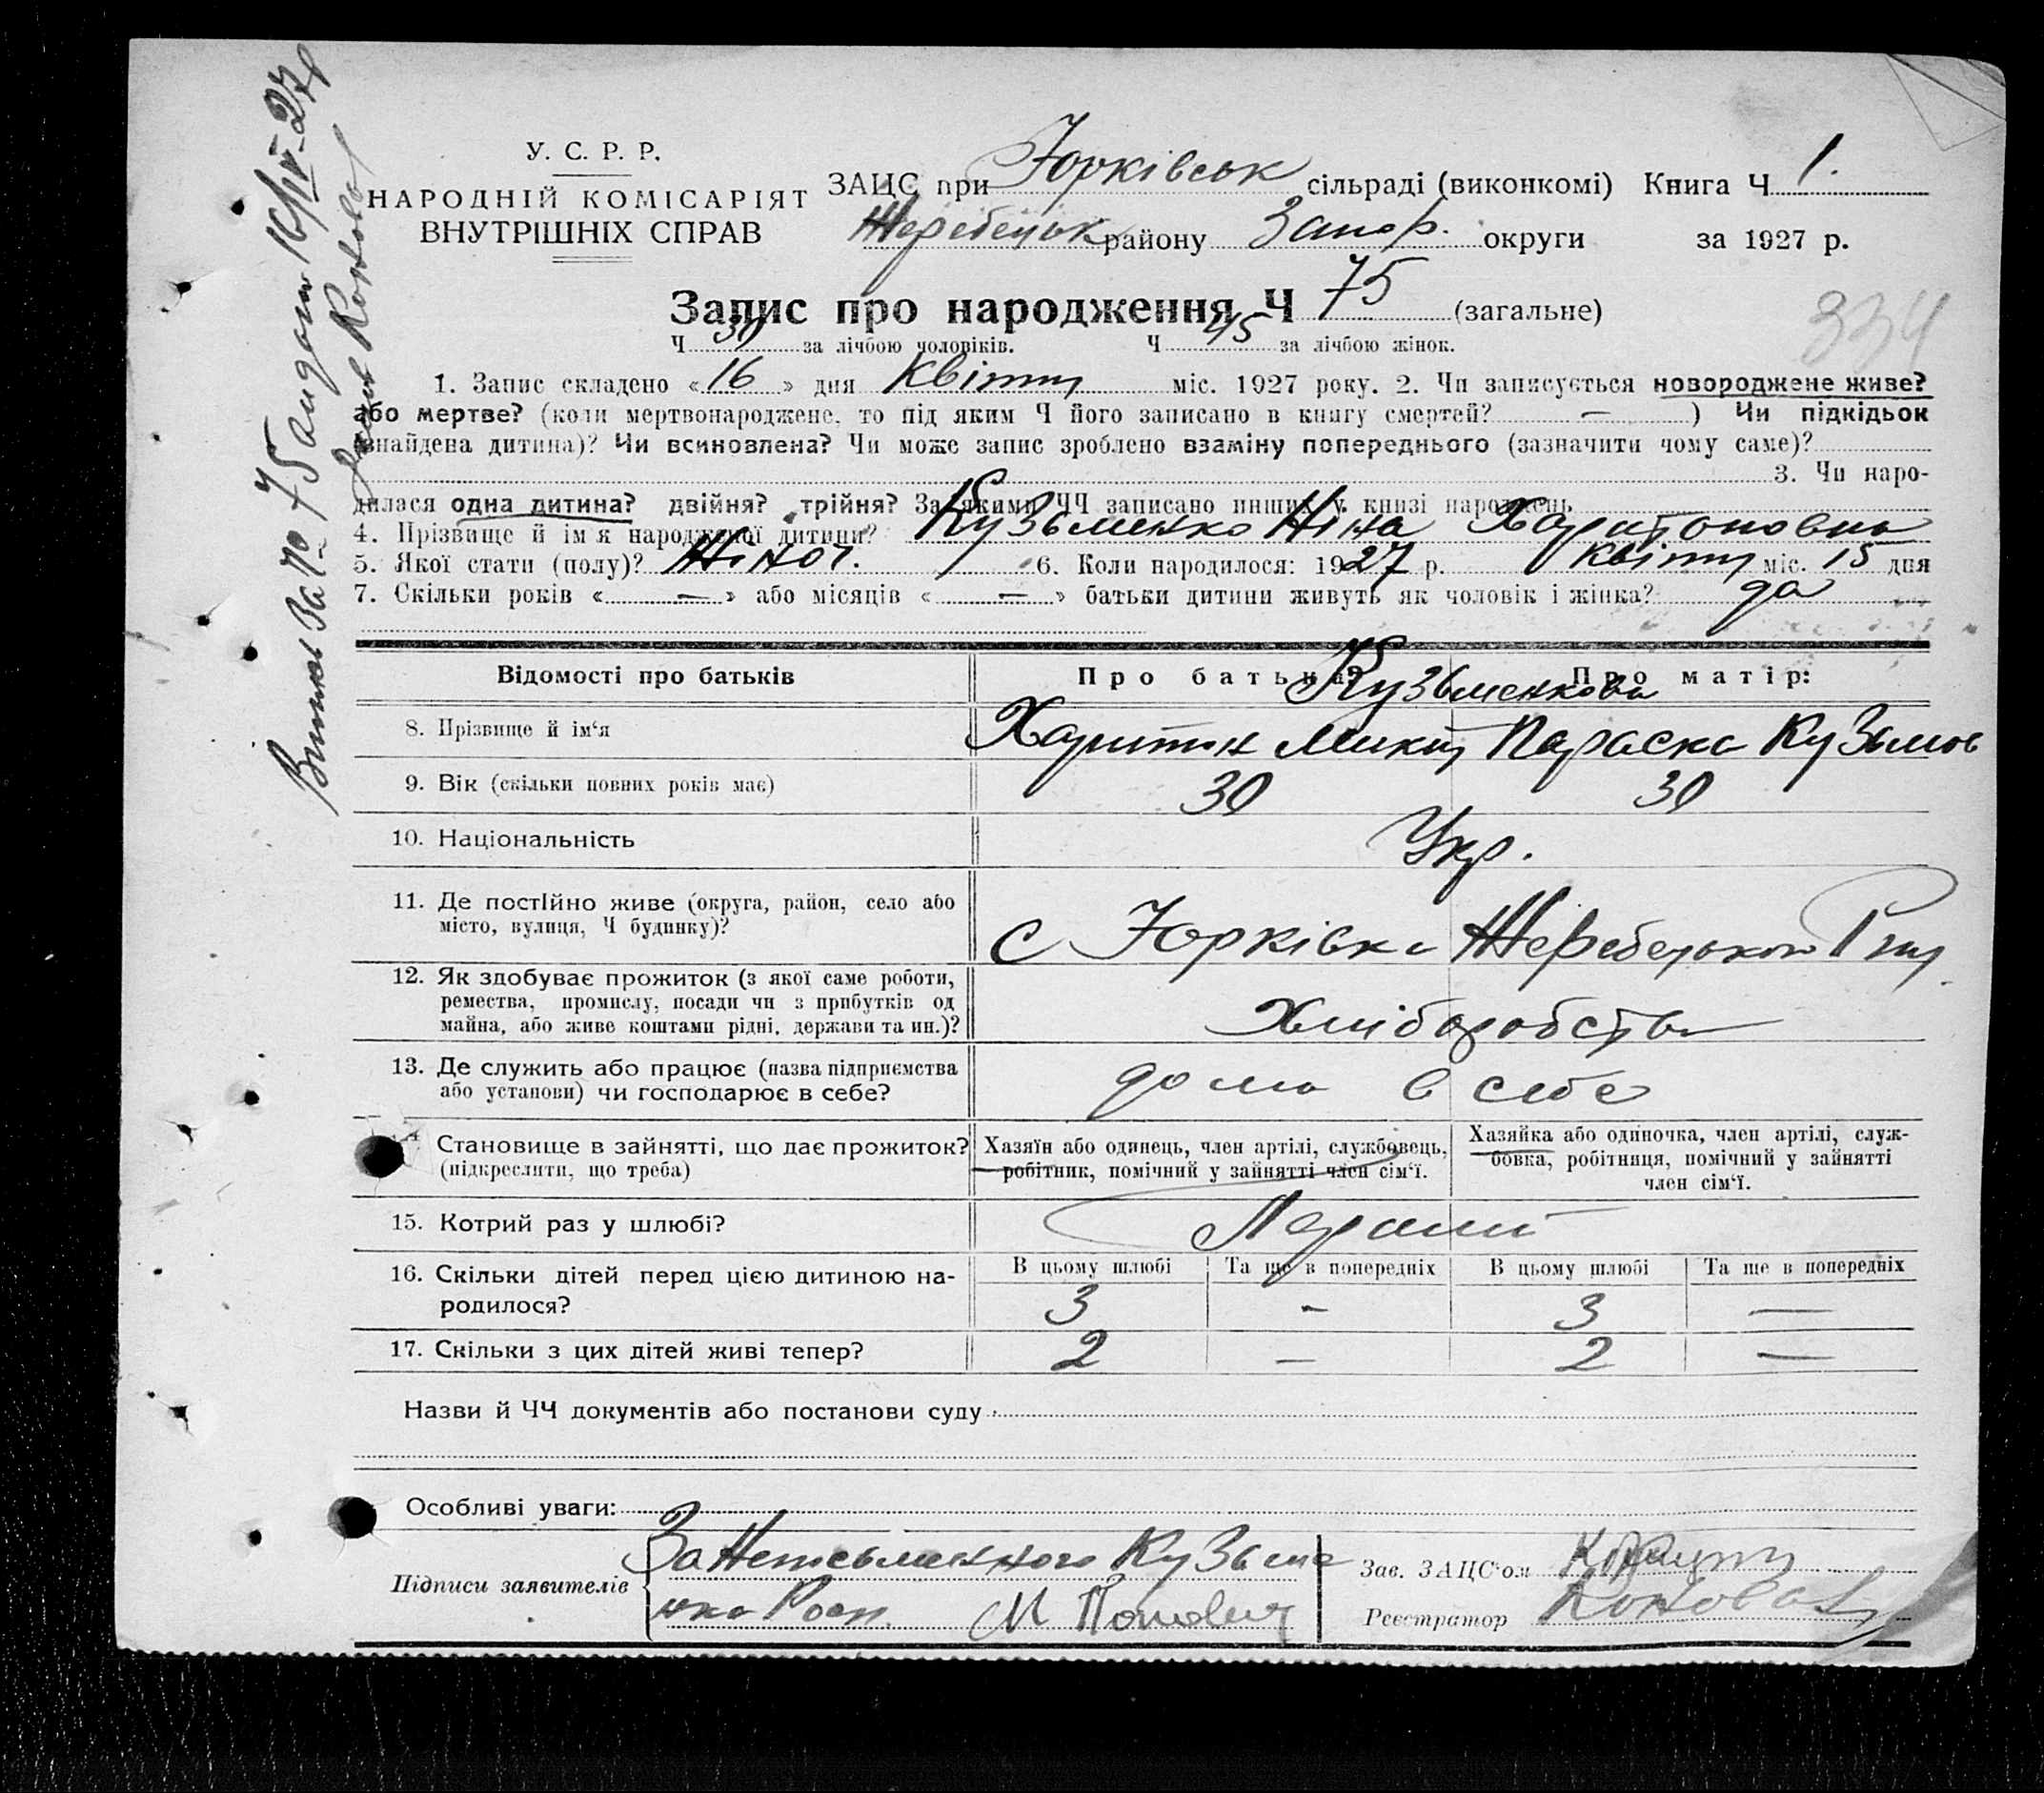 У. С. Р. Р.
НАРОДНІЙ КОМІСАРІЯТ
ВНУТРІШНІХ СПРАВ
ЗАЦС при Юрківськ сільраді (виконкомі) Книга Ч 1.
Жеребецьк району Запор. округи за 1927 р.
Запис про народження Ч 75 (загальне)
334
Ч 30 за лічбою чоловіків. Ч 45 за лічбою жінок.
1. Запис складено «16» дня Квітня міс. 1927 року. 2. Чи записується новороджене живе?
або мертве? (коли мертвонароджене, то під яким Ч його записано в книгу смертей? — ) Чи підкідьок
(знайдена дитина)? Чи всиновлена? Чи може запис зроблено взаміну попереднього (зазначити чому саме)?
3. Чи наро-
дилася одна дитина? двійня? трійня? За якими ЧЧ записано инших у книзі народжень
4. Прізвище й ім'я народженої дитини? Кузьменко Ніна Харитоновна
5. Якої стати (полу)? Жіноч. 6. Коли народилося: 1927 р. Квітня міс. 15 дня
7. Скільки років « — » або місяців « — » батьки дитини живуть як чоловік і жінка? да
Відомості про батьків Про батька: Про матір:
Кузьменкови
8. Прізвище й ім'я Харитон Микит Параска Кузьмов
9. Вік (скільки повних років має) 30 30
10. Національність Укр.
11. Де постійно живе (округа, район, село або
місто, вулиця, Ч будинку)? с Юрківка Жеребецького
12. Як здобуває прожиток (з якої саме роботи,
ремества, промислу, посади чи з прибутків од
майна, або живе коштами рідні, держави та ин.)? Хліборобства
13. Де служить або працює (назва підприємства
або установи) чи господарює в себе? дома в себе
Становище в зайнятті, що дає прожиток?
(підкреслити, що треба)
Хазяїн або одинець, член артілі, службовець,
робітник, помічний у зайнятті член сім'ї.
Хазяйка або одиночка, член артілі, служ-
бовка, робітниця, помічний у зайнятті
член сім'ї.
15. Котрий раз у шлюбі? Перший
16. Скільки дітей перед цією дитиною на-
родилося?
В цьому шлюбі Та ще в попередніх В цьому шлюбі Та ще в попередніх
3 - 3 —
17. Скільки з цих дітей живі тепер? 2 — 2 —
Назви й ЧЧ документів або постанови суду
Особливі уваги:
Підписи заявителів За Неписьменного Кузьме
нка Росп. М Попович
Зав. ЗАЦС'ом
Реєстратор Коновал
Витяг за № 75 видано 16/IV-27р